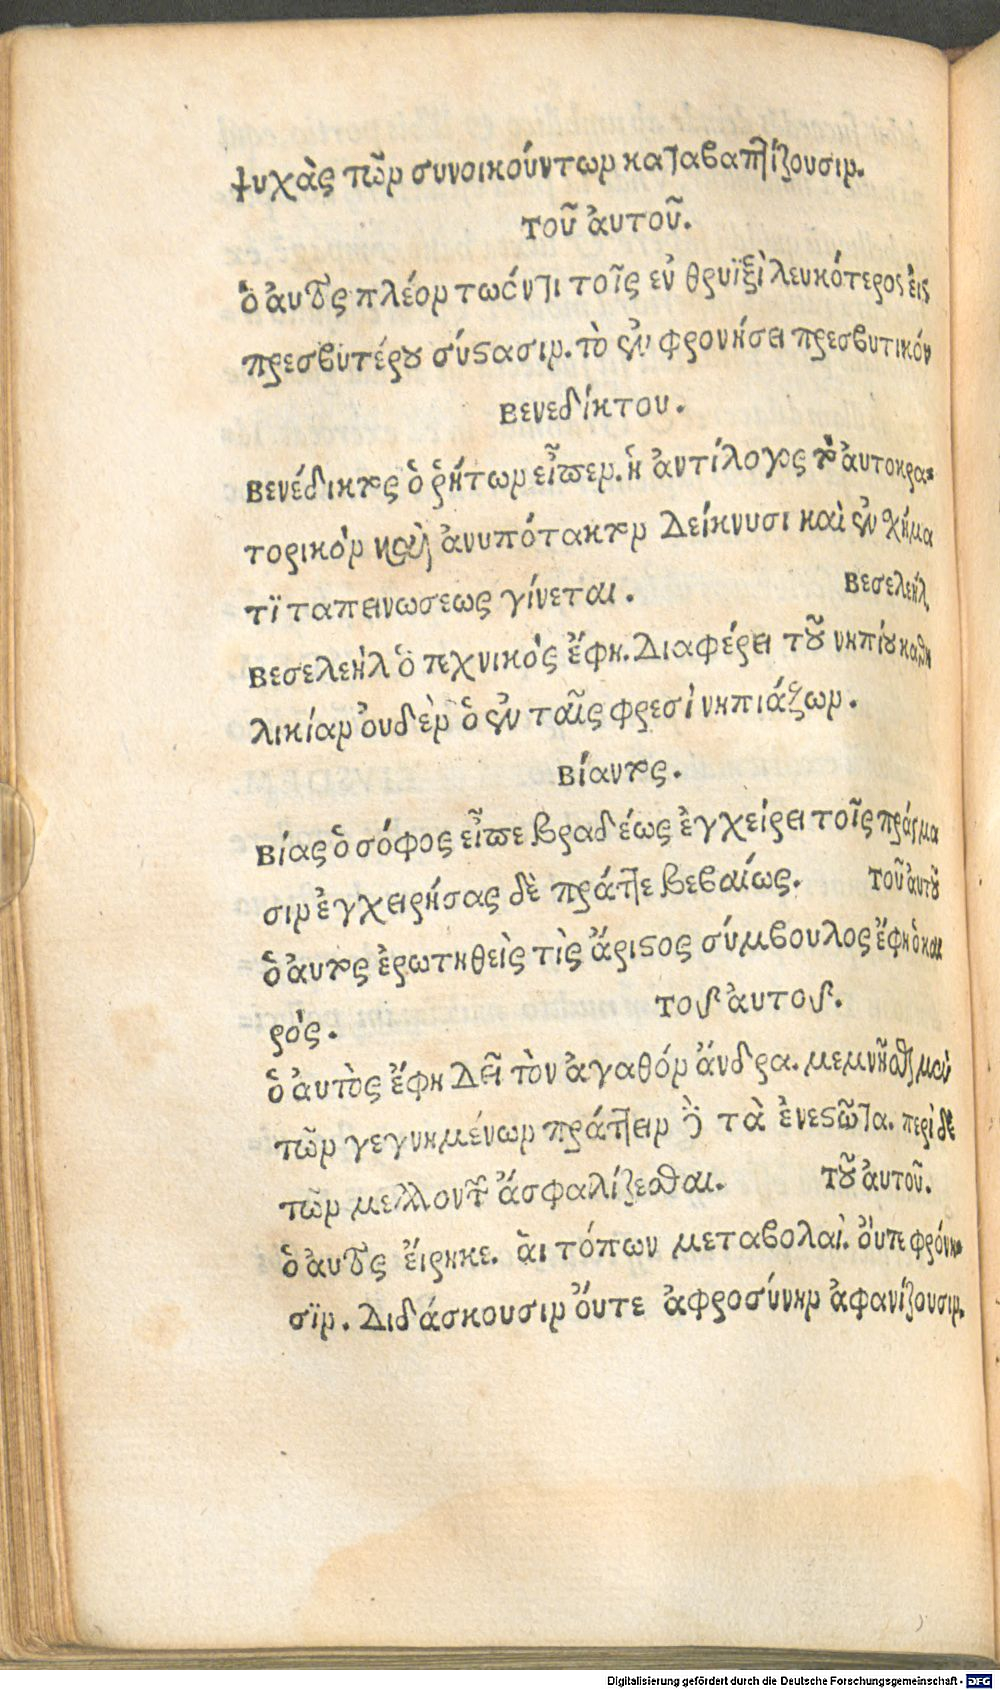 ψυχὰς τῶν συνοικούντων καταβαπτίζουσιν.
τοῦ ἀυτοῦ.
ὁ ἀυτὸς πλέον τωόντι τοῖς εὐ θρυϊξὶ λευκότερος ἐις
πρεσβυτέρου σύστασιν. τὸ ἐν φρονήσει πρεσβυτικόν
Βενεδίκτου.
Βενέδικτος ὁ ῥήτωρ εἶπεν. ἡ ἀντίλογος τὸ ἀυτοκρα-
τορικὸν καὶ ἀνυπότακτον Δείκνυσι καὶ ἐν χήμα
τϊ ταπεινωσεως γίνεται. Βεσελεήλ
Βεσελεὴλ ὁ τεχνικὸς ἔφη. Διαφέρει τοῦ νηπίου καθη
λικίαν ὀυδὲν ὁ ἐν ταῖς φρεσὶ νηπιάζων.
Βίαντος.
Βίας ὁ σόφος εἶπε βραδέως ἐγχείρει τοῖς πράγμα
σιν ἐγχειρήσας δὲ πράττε βεβαίως. τοῦ ἀυτοῦ
ὁ ἀυτος ἐρωτηθεὶς τὶς ἄριστος σύμβουλος ἔφη ὁ και
ρὸς. τοῦ ἀυτοῦ.
ὁ ἀυτὸς ἔφη Δεῖ τὸν ἀγαθόν ἄνδρα. μεμνῆσθαι μεν
τῶν γεγνημένων πράττειν δὲ τὰ ἐνεστῶτα. περὶ δὲ
τῶν μελλοντων ἀσφαλίζεσθαι. τοῦ ἀυτοῦ.
ὁ ἀυτὸς ἐίρηκε. ἁι τόπων μεταβολαὶ. ὄυτε φρόνη-
σϊν. Διδάσκουσιν ὄυτε ἀφροσύνην ἀφανίζουσιν.
Digitalisierung gefördert durch die Deutsche Forschungsgemeinschaft - DFG